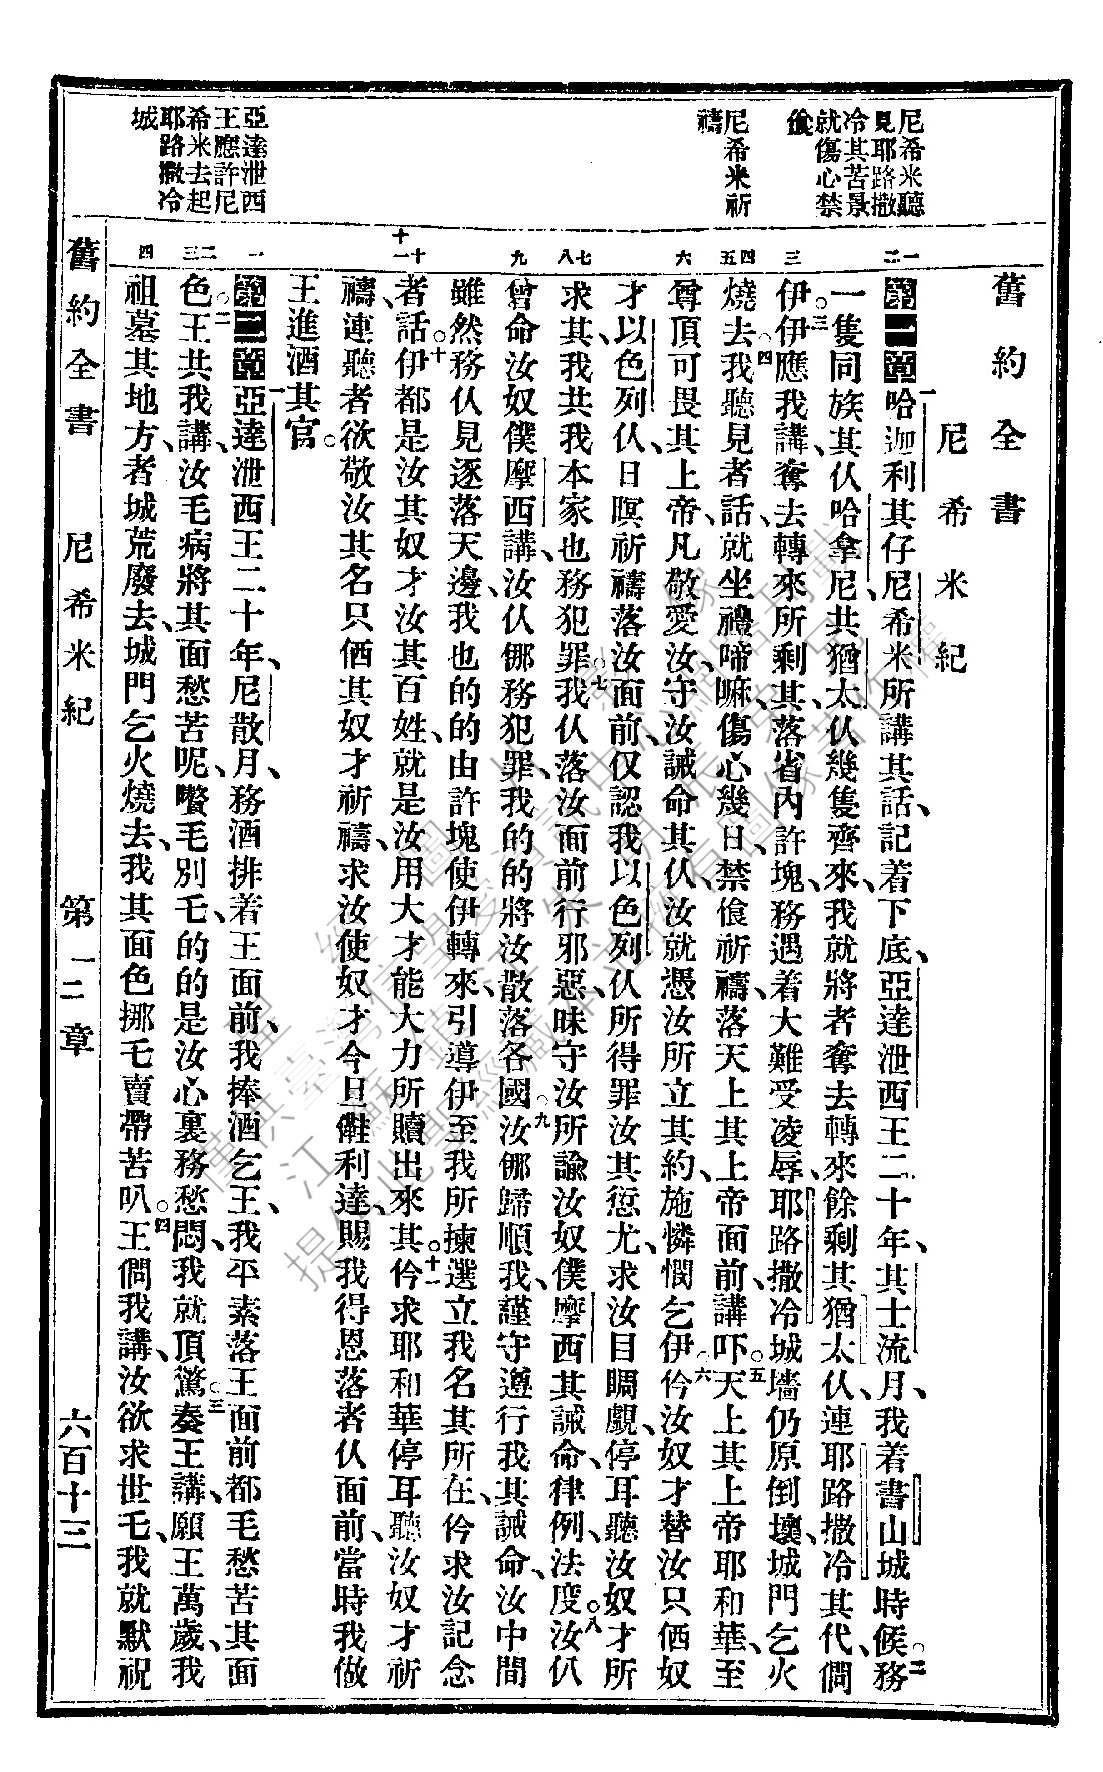 尼希米聽
見耶路撒
冷其苦景
就傷心禁
食
尼希米祈
禱
亞達泄西
王應許尼
希米去起
耶路撒冷
城
舊約全書
尼希米紀
第一章 哈迦利其仔尼希米所講其話、記着下底、亞達泄西王二十年、其士流月、我着書山城時候、務
一隻同族其仈哈拿尼共猶太仈幾隻齊來、我就將者奪去轉來餘剩其猶太仈、連耶路撒冷其代、問
伊。伊應我講、奪去轉來所剩其、落省內許塊、務遇着大難受凌辱、耶路撒冷城墻仍原倒壞、城門乞火
燒去。我聽見者話、就坐禮啼嘛傷心幾日、禁飡祈禱、落天上其上帝面前、講吓。天上其上帝耶和華、至
尊頂可畏其上帝、凡敬愛汝、守汝誡命其仈、汝就憑汝所立其約、施憐憫乞伊。伶汝奴才替汝只俩奴
才、以色列仈、日暝祈禱落汝面前、仅認我以色列仈所得罪汝其愆尤、求汝目睭覷、停耳聽汝奴才所
求其、我共我本家也務犯罪。我仈落汝面前行邪惡、昧守汝所諭汝奴僕摩西其誡命、律例、法度。汝仈
曾命汝奴僕摩西講、汝仈㑚務犯罪、我的的將汝散落各國。汝㑚歸順我、謹守遵行我其誡命、汝中間
雖然務仈見逐落天邊、我也的的由許塊使伊轉來、引導伊至我所揀選立我名其所在、伶求汝記念
者話。伊都是汝其奴才汝其百姓、就是汝用大才能大力所贖出來其。伶求耶和華停耳聽汝奴才祈
禱、連聽者欲敬汝其名只俩其奴才祈禱、求汝使奴才今旦僆利達、賜我得恩落者仈面前、當時我做
王進酒其官。
第二章 亞達泄西王二十年、尼散月、務酒排着王面前、我捧酒乞王、我平素落王面前都毛愁苦其面
色。王共我講、汝毛病將其面愁苦呢、嚽毛別乇、的的是汝心裏務愁悶、我就頂驚。奏王講、願王萬歲、我
祖墓其地方、者城荒廢去、城門乞火燒去、我其面色挪乇賣帶苦叭。王問我講、汝欲求世乇、我就默祝
舊約全書 尼希米紀 第一二章 六百十三